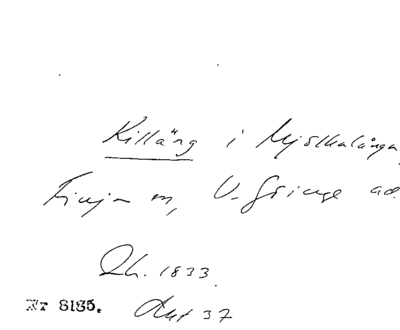 Killäng i Mjölkalånga,
Finja sn, V. Göinge hd.
Lh. 1833.
Nr 8185. Akt 37